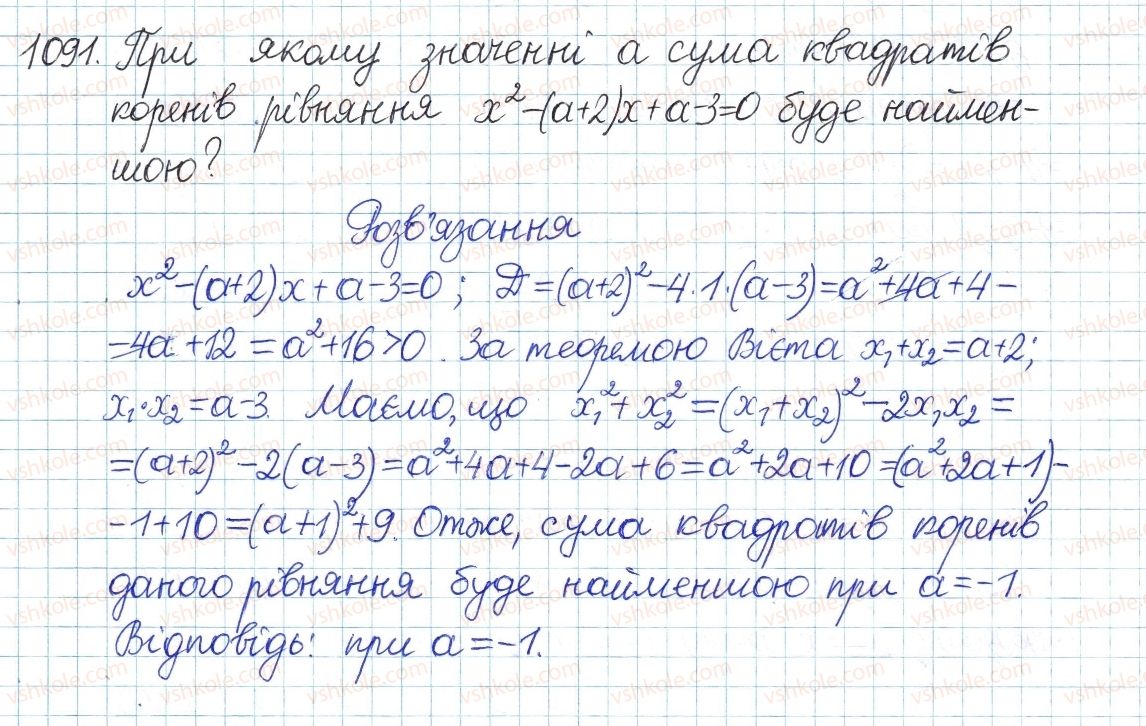 1091. При якому значенні а сума квадратів
коренів рівняння x²-(a+2)x+a-3=0 буде наймен-
шою?
Розв'язання
x²-(a+2)x+a-3=0; D=(a+2)²-4·1·(a-3)=a²+4a+4-
-4a+12=a²+16>0. За теоремою Вієта x₁+x₂=a+2;
x₁·x₂=a-3. Маємо, що x₁²+x₂²=(x₁+x₂)²-2x₁x₂=
=(a+2)²-2(a-3)=a²+4a+4-2a+6=a²+2a+10=(a²+2a+1)-
-1+10=(a+1)²+9. Отже, сума квадратів коренів
даного рівняння буде найменшою при a=-1.
Відповідь: при a=-1.